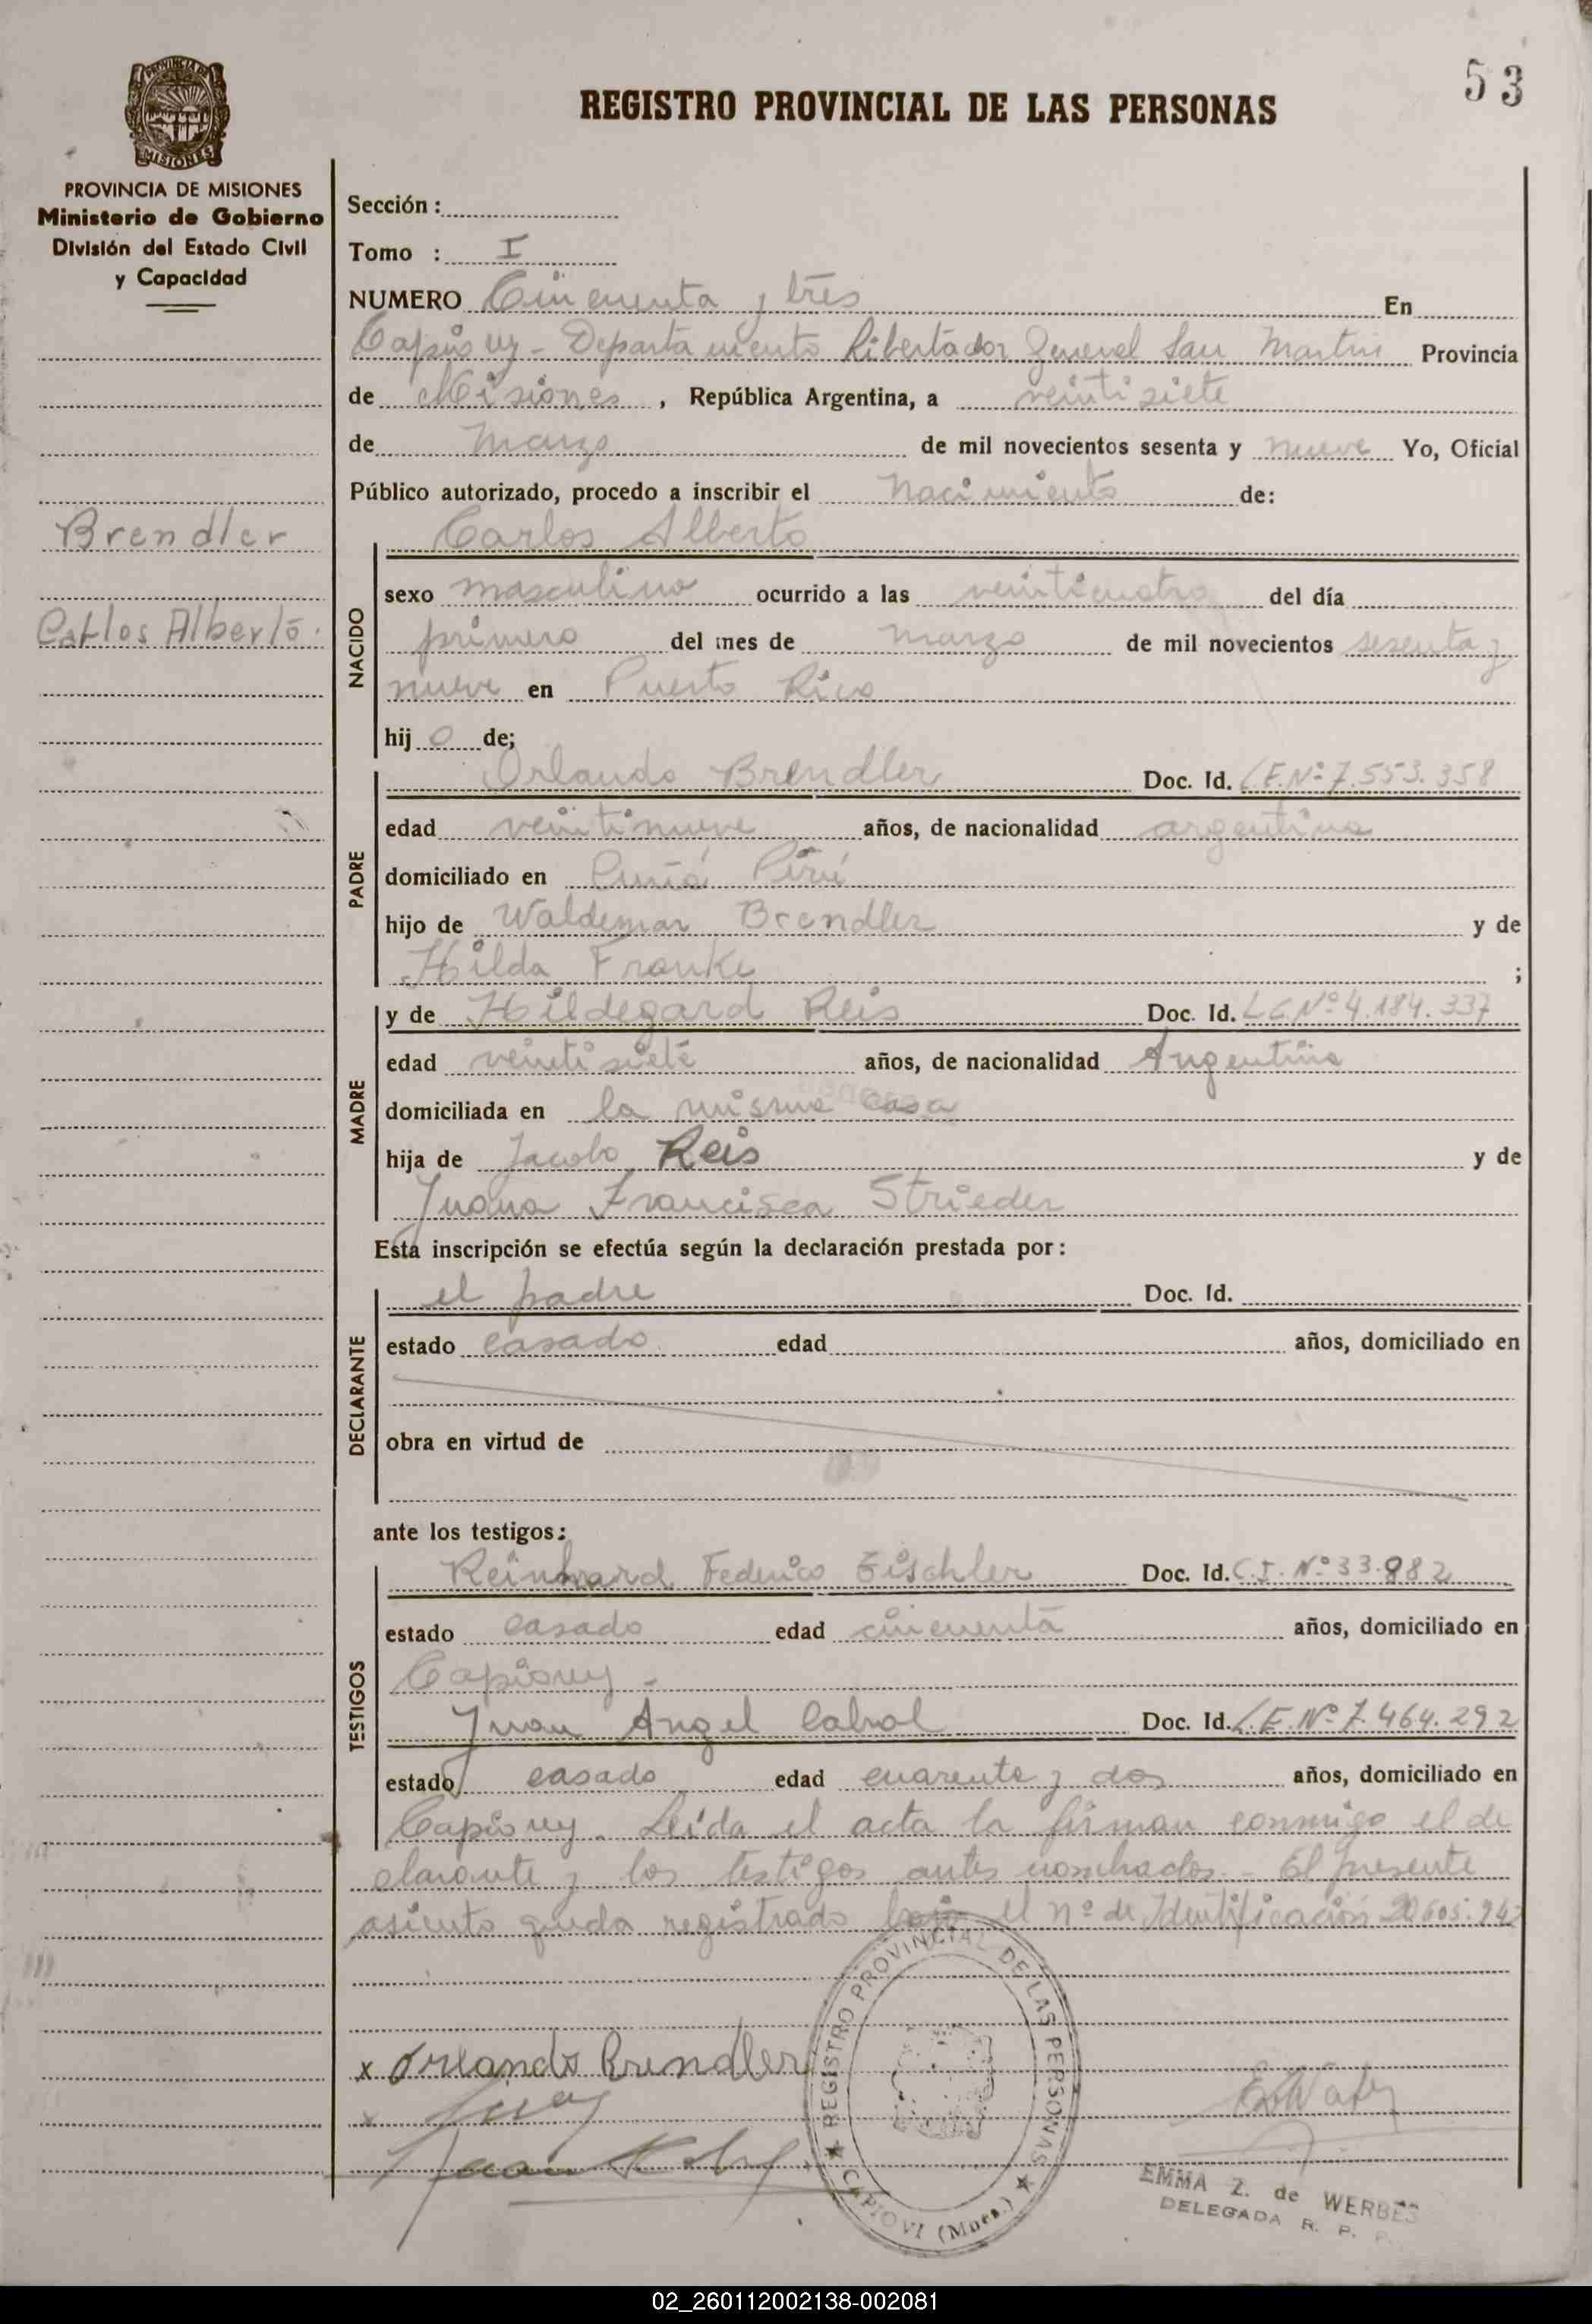 53
REGISTRO PROVINCIAL DE LAS PERSONAS
PROVINCIA DE MISIONES
MISIONES
PROVINCIA DE MISIONES
Ministerio de Gobierno
División del Estado Civil
y Capacidad
Brendler
Carlos Alberto.
Sección :
Tomo : I
NUMERO Cincuenta y tres En
Capiovy - Departamento Libertador General San Martin Provincia
de Misiones , República Argentina, a veintisiete
de Marzo de mil novecientos sesenta y nueve Yo, Oficial
Público autorizado, procedo a inscribir el nacimiento de:
NACIDO
Carlos Alberto
sexo masculino ocurrido a las veinticuatro del día
primero del mes de marzo de mil novecientos sesenta y
nueve en Puerto Rico
hij o de;
PADRE
Orlando Brendler Doc. Id. L.E.Nº 7.553.358
edad veintinueve años, de nacionalidad argentina
domiciliado en Cuñá Pirú
hijo de Waldemar Brendler y de
Hilda Franke ;
MADRE
y de Hildegard Reis Doc. Id. L.C.Nº 4.184.337
edad veintisiete años, de nacionalidad Argentina
domiciliada en la misma casa
hija de Jacobo Reis y de
Juana Francisca Strieder
Esta inscripción se efectúa según la declaración prestada por:
DECLARANTE
el padre Doc. Id.
estado casado edad años, domiciliado en
obra en virtud de
ante los testigos:
TESTIGOS
Reinhard Federico Doc. Id. C.I. Nº 33.982
estado casado edad cincuenta años, domiciliado en
Capiovy -
Juan Angel Cabral Doc. Id. L.E.Nº 7.464.292
estado casado edad cuarenta y dos años, domiciliado en
Capiovy. Leida el acta la firman conmigo el de
clarante y los testigos antes nombrados - El presente
asiento queda registrado bajo el nº de Identificación
x Orlando Brendler
x
REGISTRO PROVINCIAL DE LAS PERSONAS
CAPIOVI (Mnes.)
EMMA Z. de WERBES
DELEGADA R. P.
02_260112002138-002081